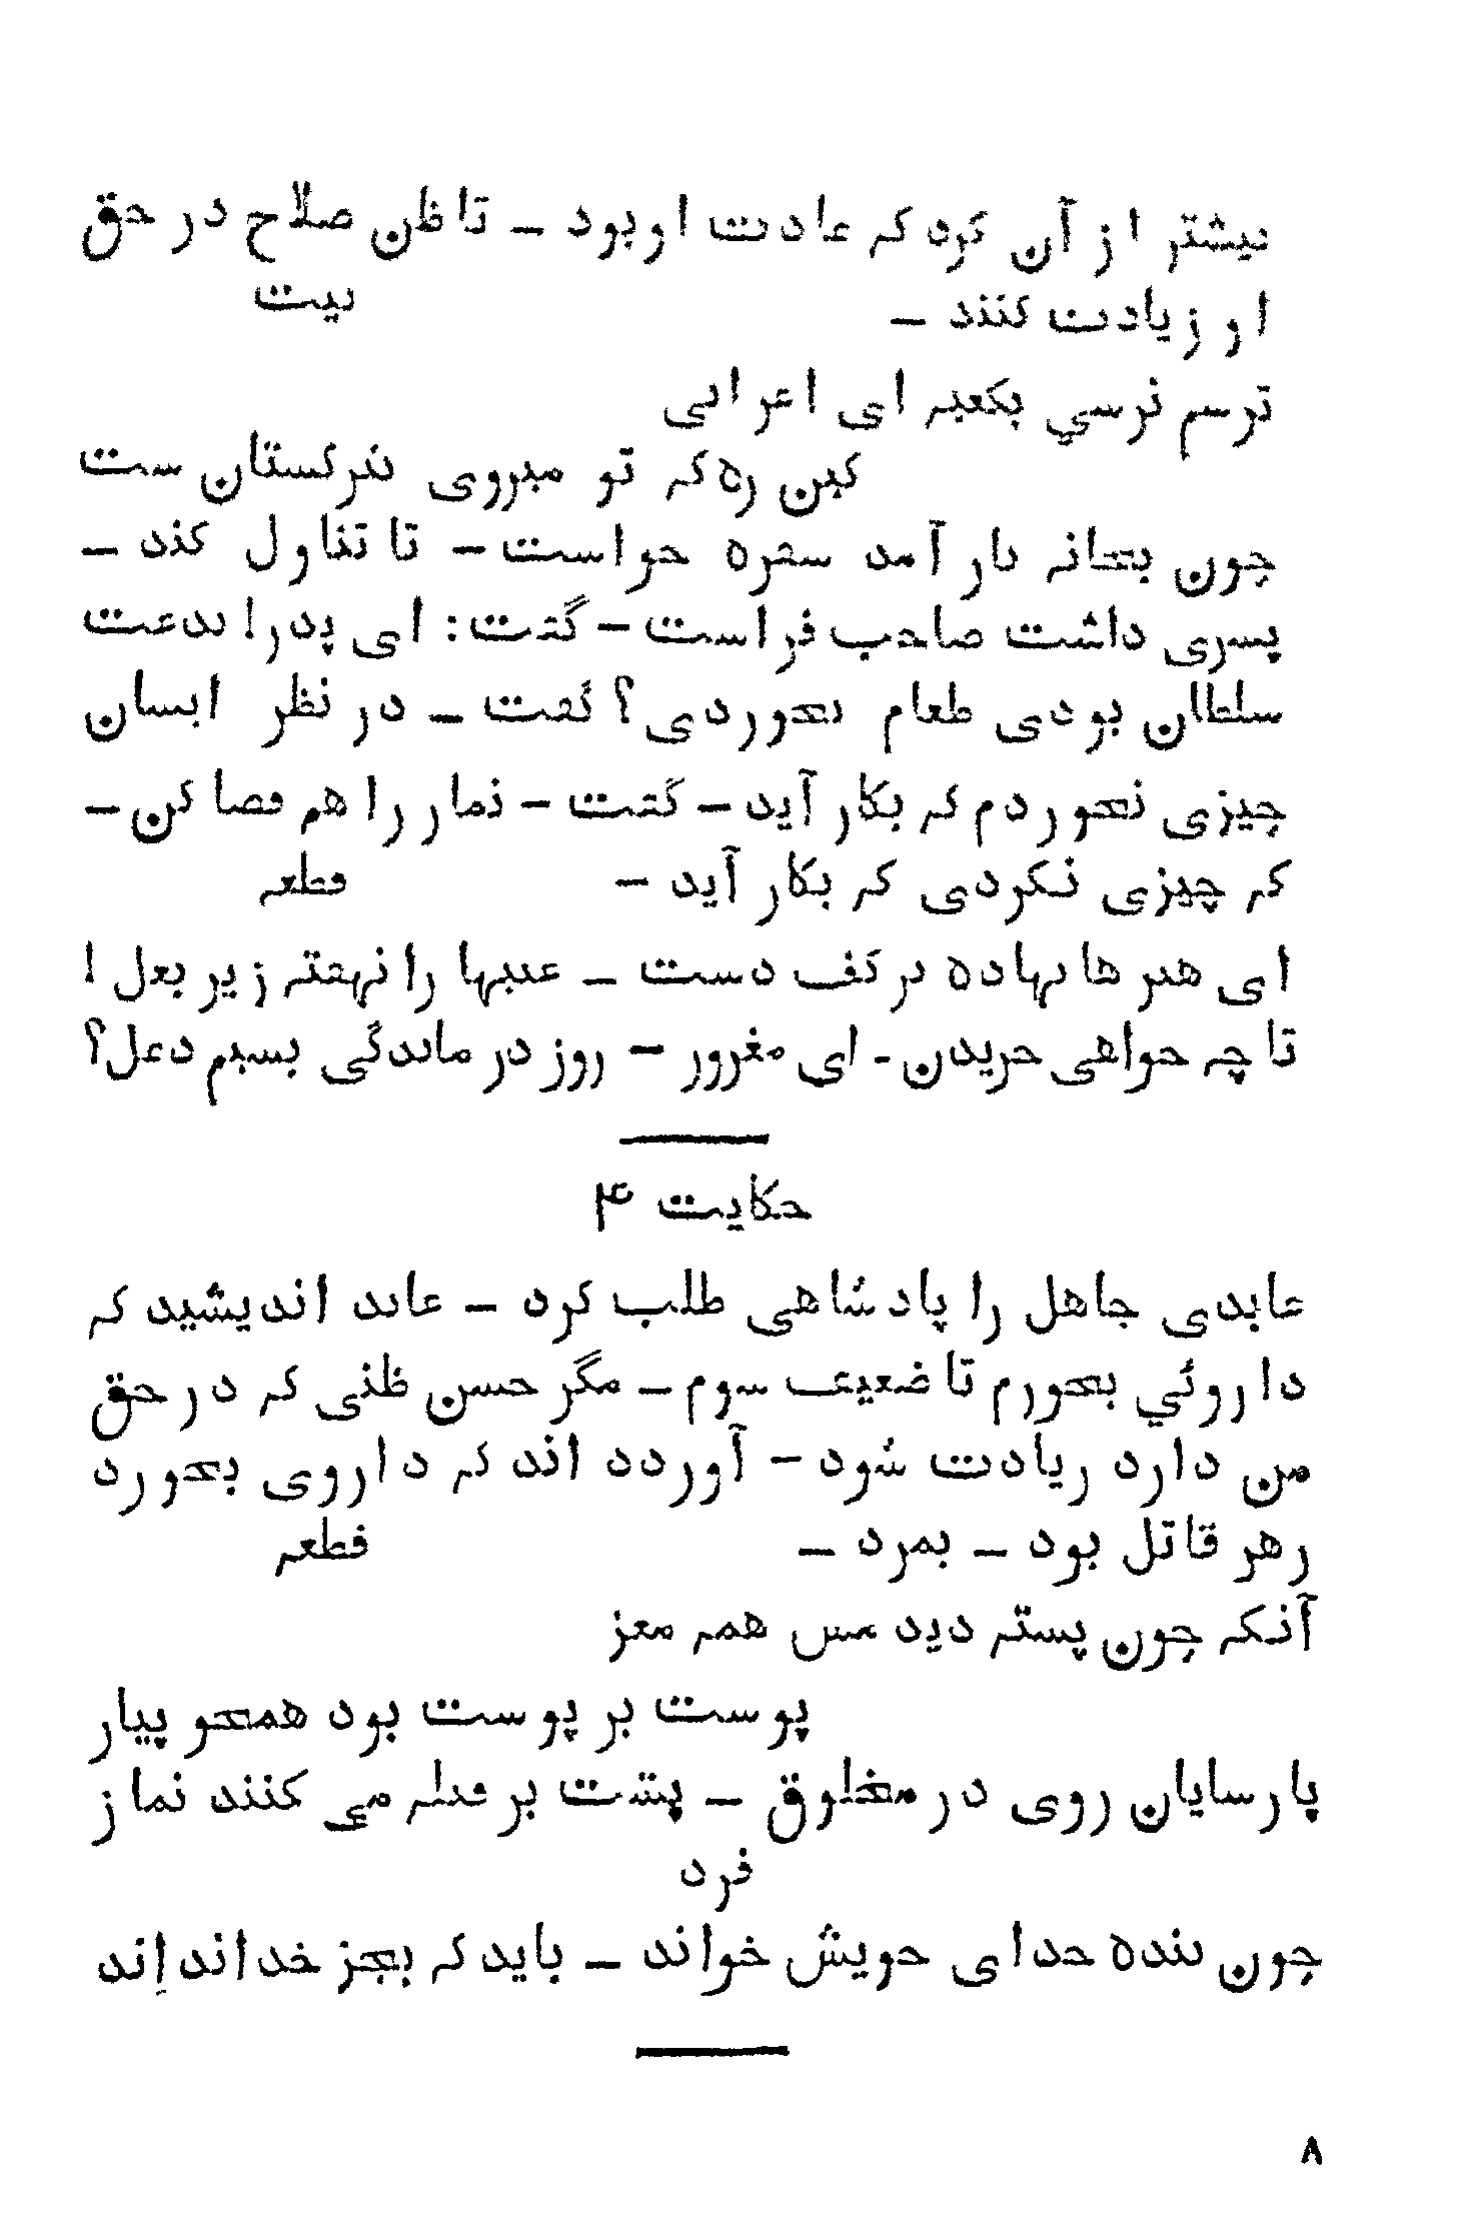 بیشتر از آن کرد که عادت او بود – تا ظن صلاح در حق
او زیادت کنند –
بیت
ترسم نرسي بکعبه ای اعرابی
کین ره که تو میروی بترکستان ست
چون بخانه باز آمد سفره خواست – تا تناول کند –
پسری داشت صاحب فراست – گفت: ای پدر! بدعت
سلطان بودی طعام نخوردی؟ گفت – در نظر ایشان
چیزی نخوردم که بکار آید – گفت – نماز را هم قضا کن –
که چیزی نکردی که بکار آید –
قطعه
ای هنر ها نهاده بر کف دست – عیبها را نهفته زیر بغل!
تا چه خواهی خریدن – ای مغرور – روز در ماندگی بسیم دغل؟
حکایت ۴
عابدی جاهل را پادشاهی طلب کرد – عابد اندیشید که
داروئي بخورم تا ضعیف شوم – مگر حسن ظنی که در حق
من دارد زیادت شود – آورده اند که داروی بخورد
زهر قاتل بود – بمرد –
قطعه
آنکه چون پسته دیدمش همه مغز
پوست بر پوست بود همچو پیاز
پارسایان روی در مخلوق – پشت بر قبله می کنند نماز
فرد
چون بنده خدای خویش خواند – باید که بجز خدا نداند
۸